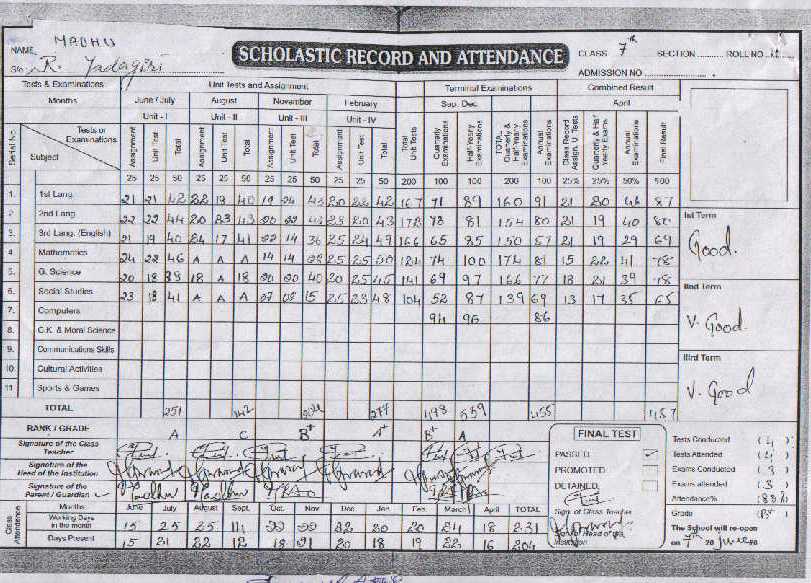 MADHU
NAME
SCHOLASTIC RECORD AND ATTENDANCE
CLASS 7th SECTION ROLL NO
S/o R. Yadagiri
ADMISSION NO
Tests & Examinations Unit Tests and Assignment Terminal Examinations Combined Result
Months June / July August November February Sep. Dec. April
Unit - I Unit - II Unit - III Unit - IV
Serial No. Tests or Examinations Subject Assignment Unit Test Total Assignment Unit Test Total Assignment Unit Test Total Assignment Unit Test Total Total Unit Tests Quarterly Examinations Half-Yearly Examinations TOTAL Quarterly & Half-Yearly Examinations Annual Examinations Class Record Assign. U. Tests Quarterly & Half Yearly Exams Annual Examinations Final Result
25 25 50 25 25 50 25 25 50 25 25 50 200 100 100 200 100 25% 25% 50% 100
1. 1st Lang. 21 21 42 22 19 40 19 24 43 20 22 42 167 71 89 160 91 21 20 46 87
2. 2nd Lang. 22 22 44 20 23 43 20 22 42 23 20 43 172 73 81 154 80 21 19 40 80
3. 3rd Lang. (English) 21 19 40 24 17 41 22 14 36 25 24 49 166 65 85 150 57 21 19 29 69
4. Mathematics 24 22 46 A A A 14 14 28 25 25 50 124 74 100 174 81 15 22 41 78
5. G. Science 20 18 38 18 A 18 20 20 40 20 25 45 141 69 97 166 77 18 21 39 78
6. Social Studies 23 18 41 A A A 07 08 15 25 23 48 104 52 87 139 69 13 17 35 65
7. Computers 94 96 86
8. G.K. & Moral Science
9. Communications Skills
10. Cultural Activities
11 Sports & Games
TOTAL 251 142 204 277 498 559 455 457
RANK / GRADE A C B+ A+ B+ A
Ist Term
Good.
IInd Term
V. Good.
IIIrd Term
V. Good
Signature of the Class Teacher
Signature of the Head of the Institution
Signature of the Parent / Guardian
FINAL TEST
PASSED
PROMOTED
DETAINED
Sign. of Class Teacher
Sign. of Head of the Institution
Tests Conducted (4)
Tests Attended (4)
Exams Conducted (3)
Exams attended (3)
Attendance% (88%)
Grade (B+)
The School will re-open
on 7th 20 June 20
Class Attendance Months June July Aug. Sept. Oct. Nov. Dec. Jan. Feb. March April TOTAL
Working Days in the month 15 25 25 14 22 22 22 20 20 24 18 231
Days Present 15 21 22 12 18 21 20 18 19 22 16 204